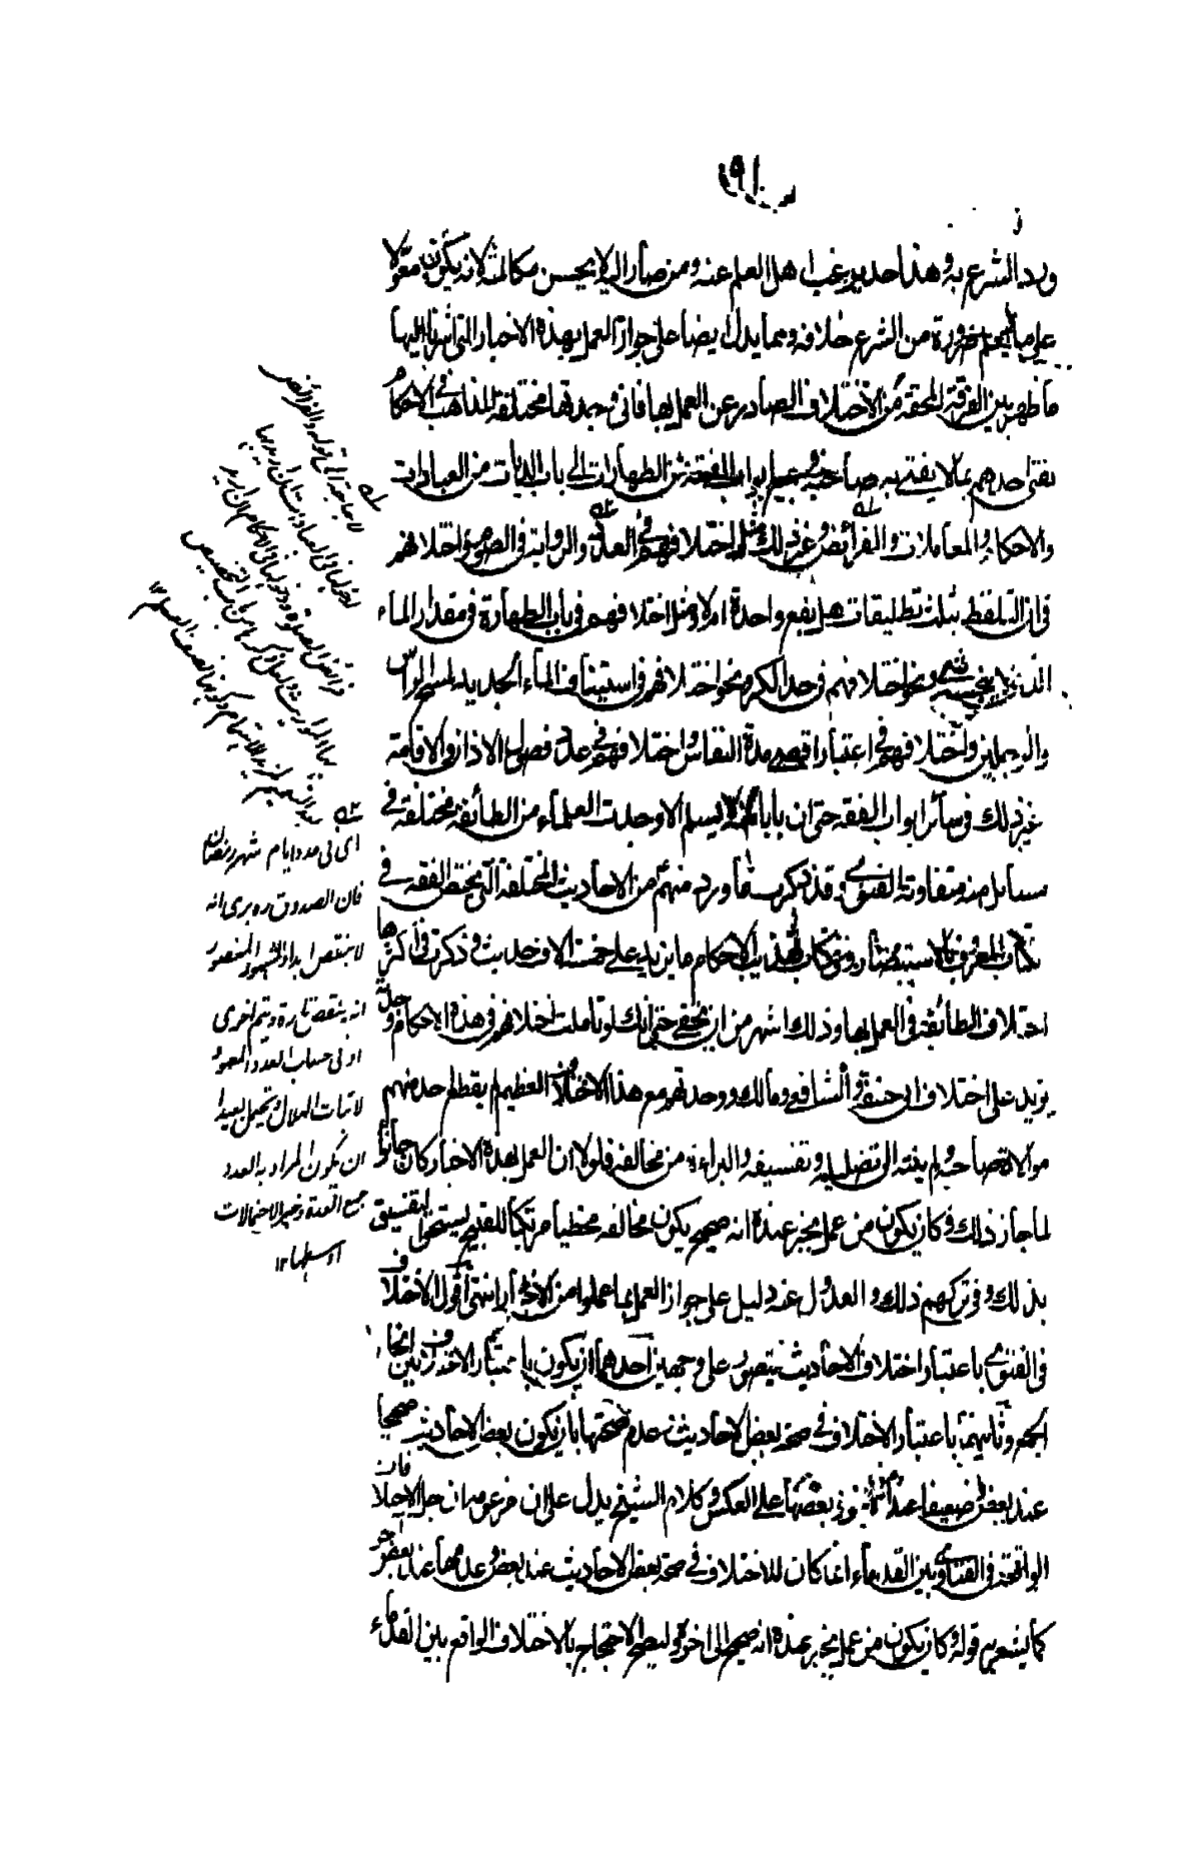 ٩١
ورد الشرع به وهذا حد يرغب اهل العلم عنه ومن صار اليه لا يحسن مكالمته لانه يكون معولا
على ما يعلم ضرورة من الشرع خلافه ومما يدل ايضا على جواز العمل بهذه الاخبار التي اشرنا اليها
ما ظهر بين الفرقة المحقة من الاختلاف الصادر عن العمل بها فاني وجدتها مختلفة المذاهب في الاحكام
يفتي احدهم بما لا يفتي به صاحبه في جميع ابواب الفقه من الطهارات الى باب الديات من العبادات
والاحكام والمعاملات والفرائض وغير ذلك مثل اختلافهم في العدد والرواية في الصوم واختلافهم
في ان التلفظ بثلث تطليقات هل يقع واحدة ام لا ومثل اختلافهم في باب الطهارة في مقدار الماء
الذي لا ينجسه شيء ونحو اختلافهم في حد الكر ونحو اختلافهم في استيناف الماء الجديد لمسح الراس
والرجلين واختلافهم في اعتبار اقصى مدة النفاس واختلافهم في عدد فصول الاذان والاقامة
غير ذلك في سائر ابواب الفقه حتى ان بابا منه لا يسلم الا وجدت العلماء من الطائفة مختلفة في
مسائل منه متفاوتة الفتوى وقد ذكرت ما ورد منهم من الاحاديث المختلفة التي يختص الفقه في
كتاب المعروف بالاستبصار وفي كتاب تهذيب الاحكام ما يزيد على خمسة الاف حديث وذكرت في اكثرها
اختلاف الطائفة في العمل بها وذلك اشهر من ان يخفى حتى انك لو تاملت اختلافهم في هذه الاحكام وجدته
يزيد على اختلاف ابي حنيفة والشافعي ومالك ووجدتهم مع هذا الاختلاف العظيم لم يقطع احد منهم
موالاة صاحبه ولم ينته الى تضليله وتفسيقه والبراءة من مخالفه فلولا ان العمل بهذه الاخبار كان جائزا
لما جاز ذلك وكان يكون من عمل بخبر عنده انه صحيح يكون مخالفه مخطيا مرتكبا للقبيح يستحق التفسيق
بذلك وفي تركهم ذلك والعدول عنه دليل على جواز العمل بما عملوا من الاخبار انتهى اقول الاختلاف
في الفتوى باعتبار اختلاف الاحاديث يتصور على وجهين احدهما ان يكون باعتبار الاختلاف بين انحاء
الجمع وثانيهما باعتبار الاختلاف في صحة بعض الاحاديث وعدم صحتها بان يكون بعض الاحاديث صحيحا
عند بعض ضعيفا عند وفي بعضها على العكس وكلام الشيخ يدل على ان جل الاختلافات
الواقعة في الفتاوى بين القدماء انما كان للاختلاف في صحة بعض الاحاديث عند بعض وعدمها عند بعض اخر
كما يشعر به قوله وكان يكون من عمل بخبر عنده انه صحيح الى اخره وليصح الاحتجاج بالاختلاف الواقع بين القدماء
اي في عدد ايام شهر رمضان
فان الصدوق ره يرى انه
لا ينقص ابدا والمشهور المنصور
انه ينقص تارة ويتم اخرى
او في حساب العدد المعمول
لاثبات الهلال ويحتمل بعيدا
ان يكون المراد به العدد
جمع العدة وخير الاحتمالات
اوسطها ١٢